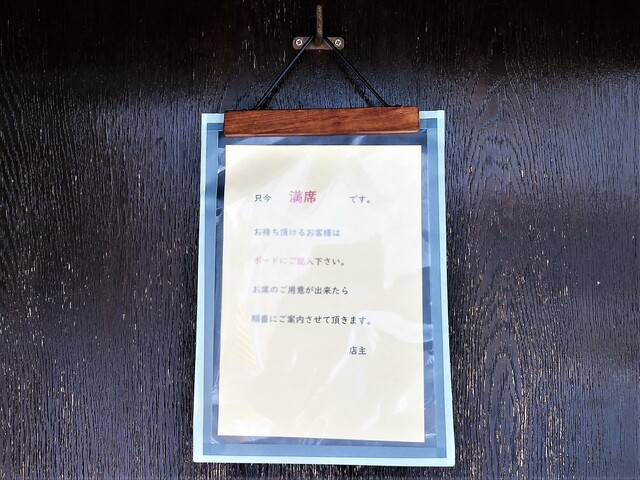 只今 満席 です。
お待ち頂けるお客様は
ボードにご記入下さい。
お席のご用意が出来たら
順番にご案内させて頂きます。
店主